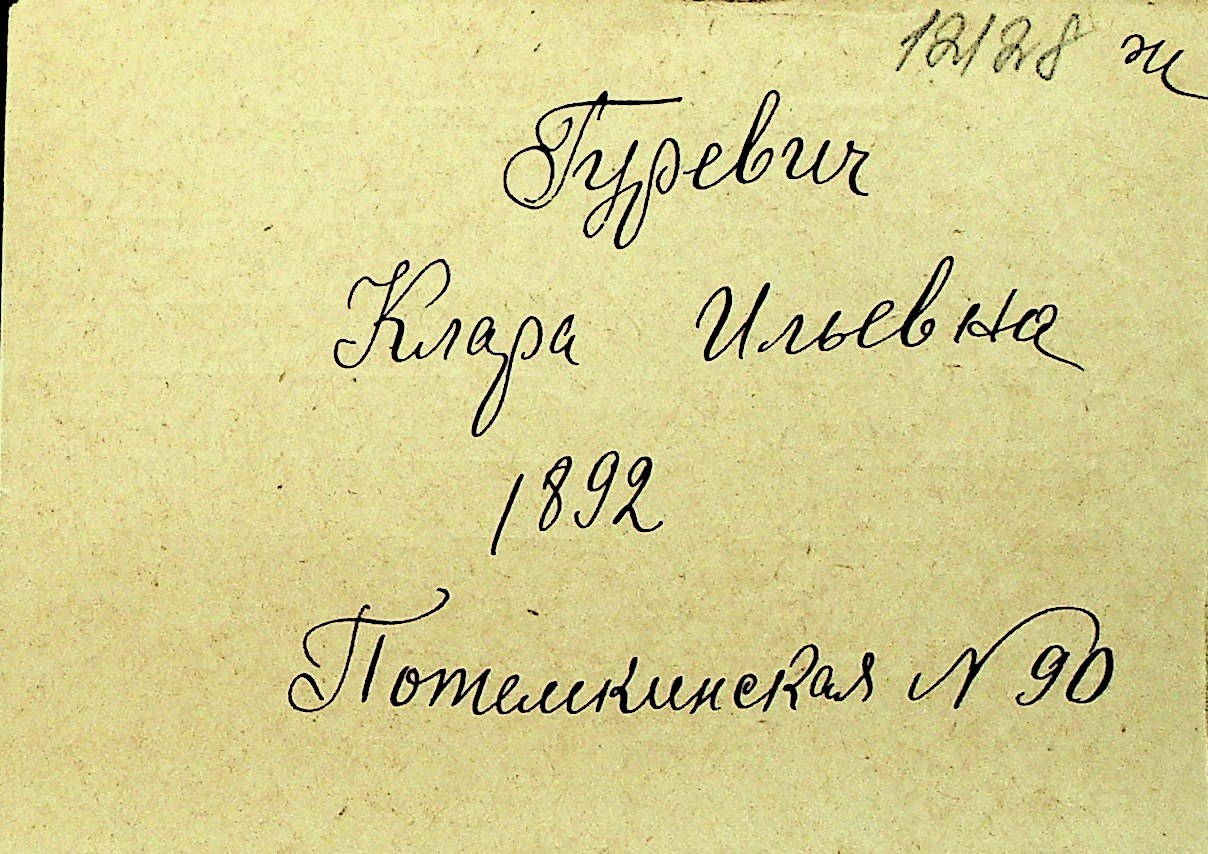 12128 ж
Гуревич
Клара Ильевна
1892
Потемкинская N 90